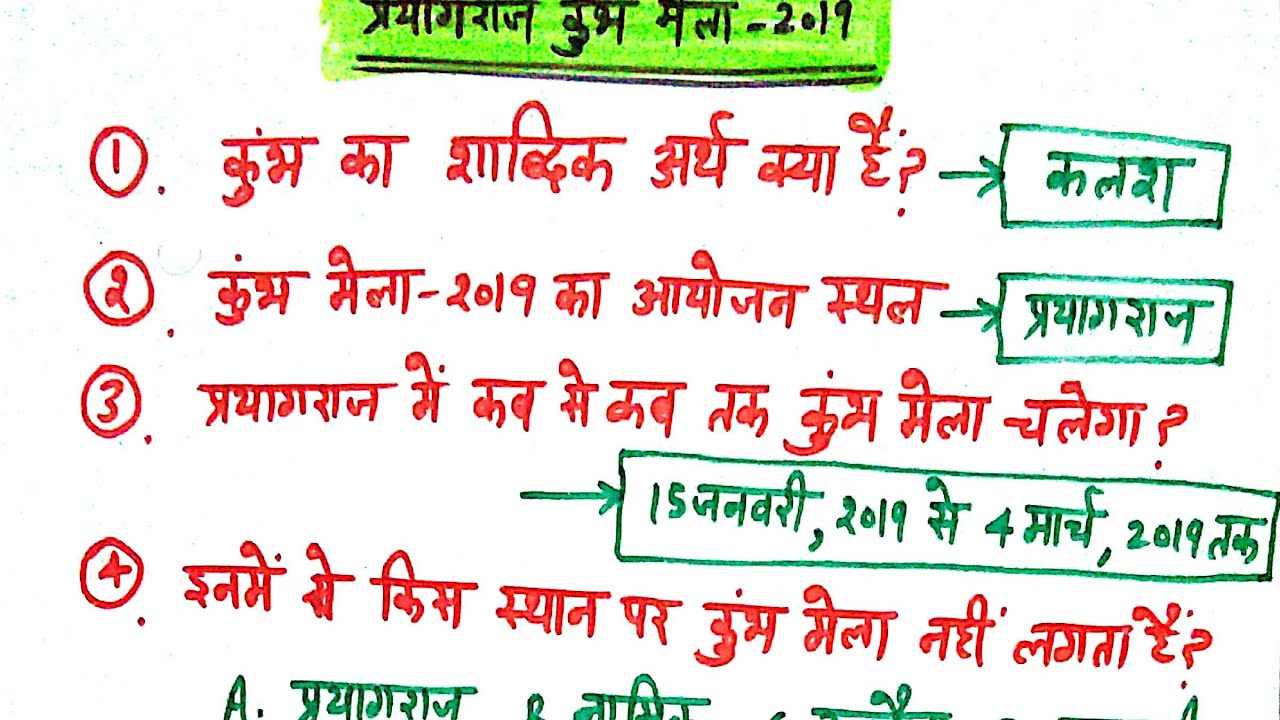 प्रयागराज कुंभ मेला - 2019
1. कुंभ का शाब्दिक अर्थ क्या हैं? → कलश
2. कुंभ मेला - 2019 का आयोजन स्थल → प्रयागराज
3. प्रयागराज में कब से कब तक कुंभ मेला चलेगा?
→ 15 जनवरी, 2019 से 4 मार्च, 2019 तक
4. इनमें से किस स्थान पर कुंभ मेला नहीं लगता हैं?
A. प्रयागराज B.